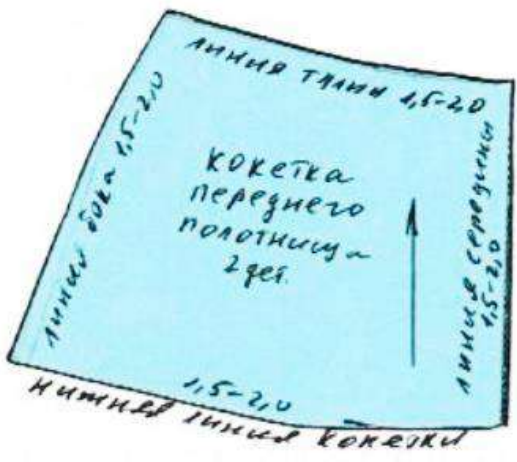 линия талии 1,5-2,0
линия бока 1,5-2,0
кокетка
переднего
полотнища
2 дет.
линия середины
1,5-2,0
1,5-2,0
нижняя линия кокетки